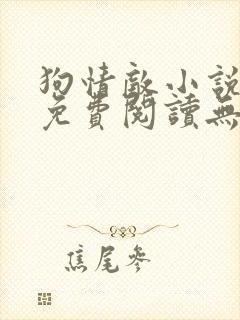 狗情敵小說
免費閱讀無
焦尾參